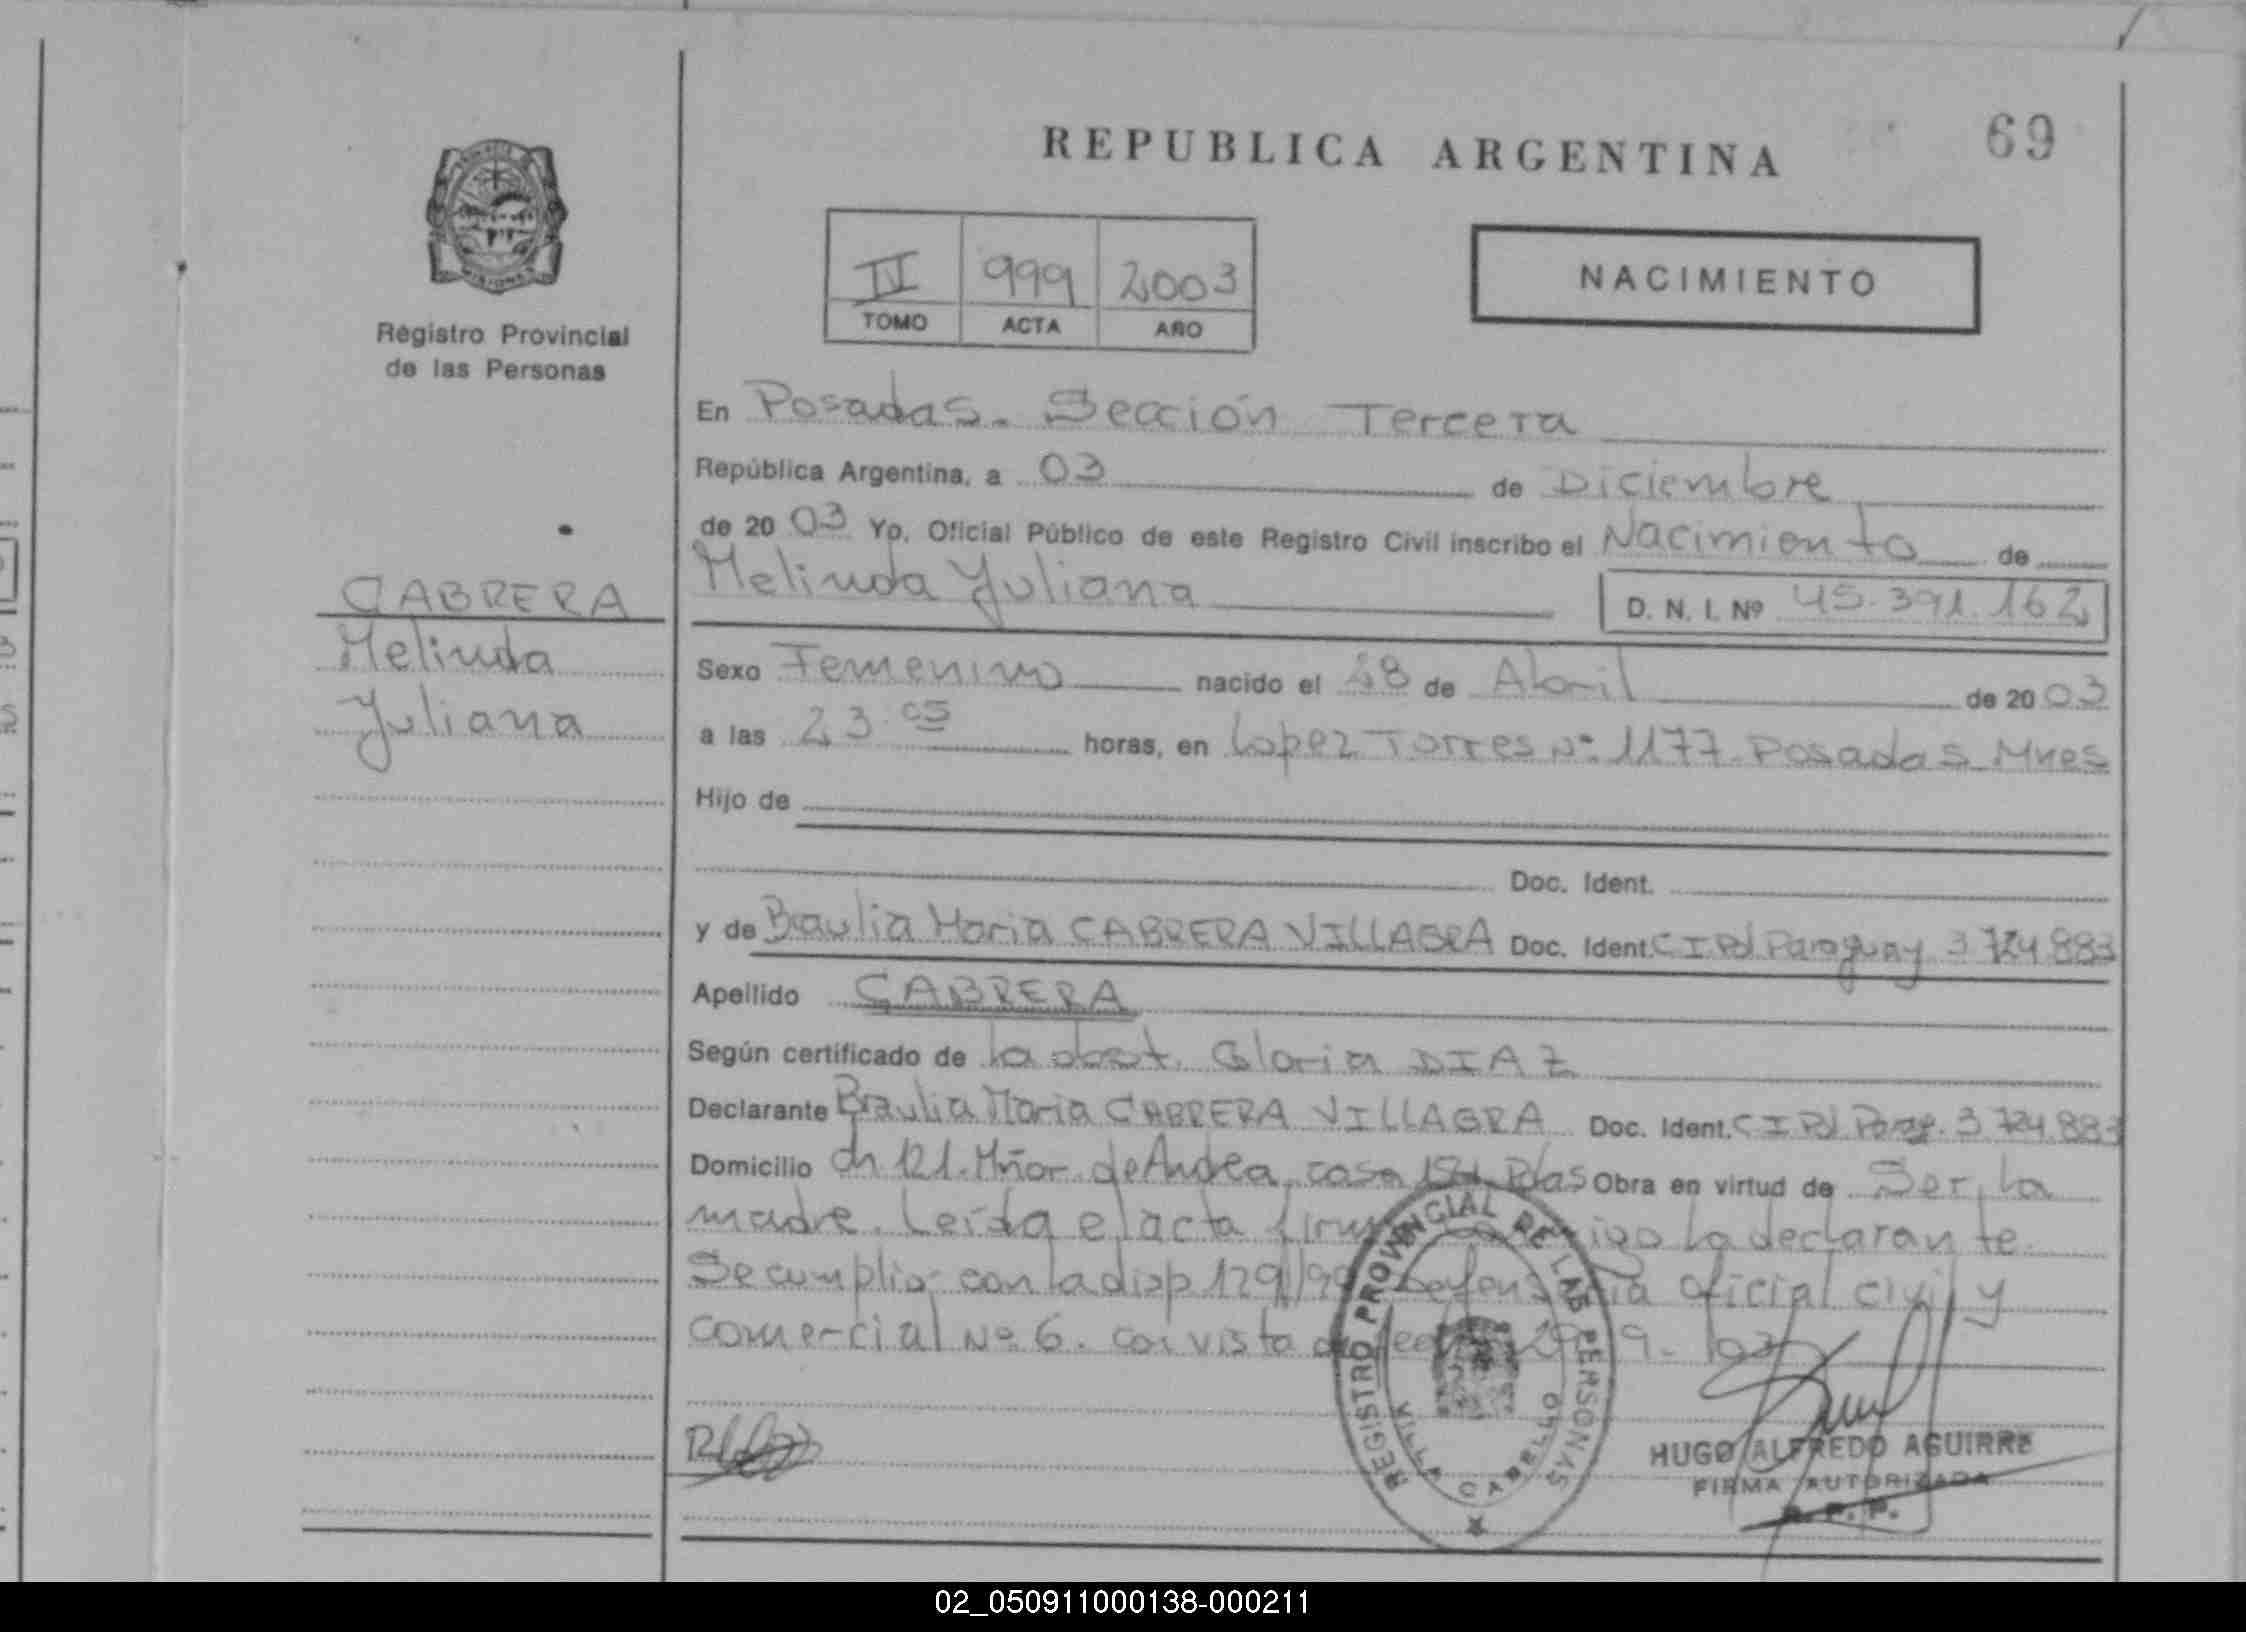 REPUBLICA ARGENTINA
69
Registro Provincial
de las Personas
II 999 2003
TOMO ACTA AÑO
NACIMIENTO
CABRERA
Melinda
Juliana
En Posadas. Sección Tercera
República Argentina, a 03 de Diciembre
de 20 03 Yo. Oficial Público de este Registro Civil inscribo el Nacimiento de
Melinda Juliana
D. N. I. Nº 45.391.162
Sexo Femenino nacido el 28 de Abril de 20 03
a las 23 05 horas, en Lopez Torres Nº 1177 Posadas Mnes
Hijo de
Doc. Ident.
y de Braulia Maria CABRERA VILLAGRA Doc. Ident. C I Pol Paraguay 3 724 883
Apellido CABRERA
Según certificado de la obst. Gloria DIAZ
Declarante Braulia Maria CABRERA VILLAGRA Doc. Ident. C I Pol 3 724.883
Domicilio ch 121. Mñor. de Andrea, casa Pdas Obra en virtud de Ser la
madre. Leída el acta la declarante
Se cumplio con la disp 129/99 Defensoria oficial civil y
comercial Nº 6. vista de
REGISTRO PROVINCIAL DE LAS PERSONAS
VILLA CABELLO
HUGO ALFREDO AGUIRRE
FIRMA AUTORIZADA
R. P. P.
02_050911000138-000211